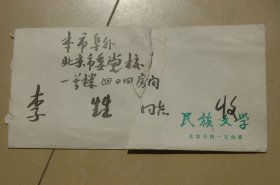 本市阜外
北京市委党校
一号楼四〇四房间
李 甡 同志 收
民族文学
北京市四一五信箱